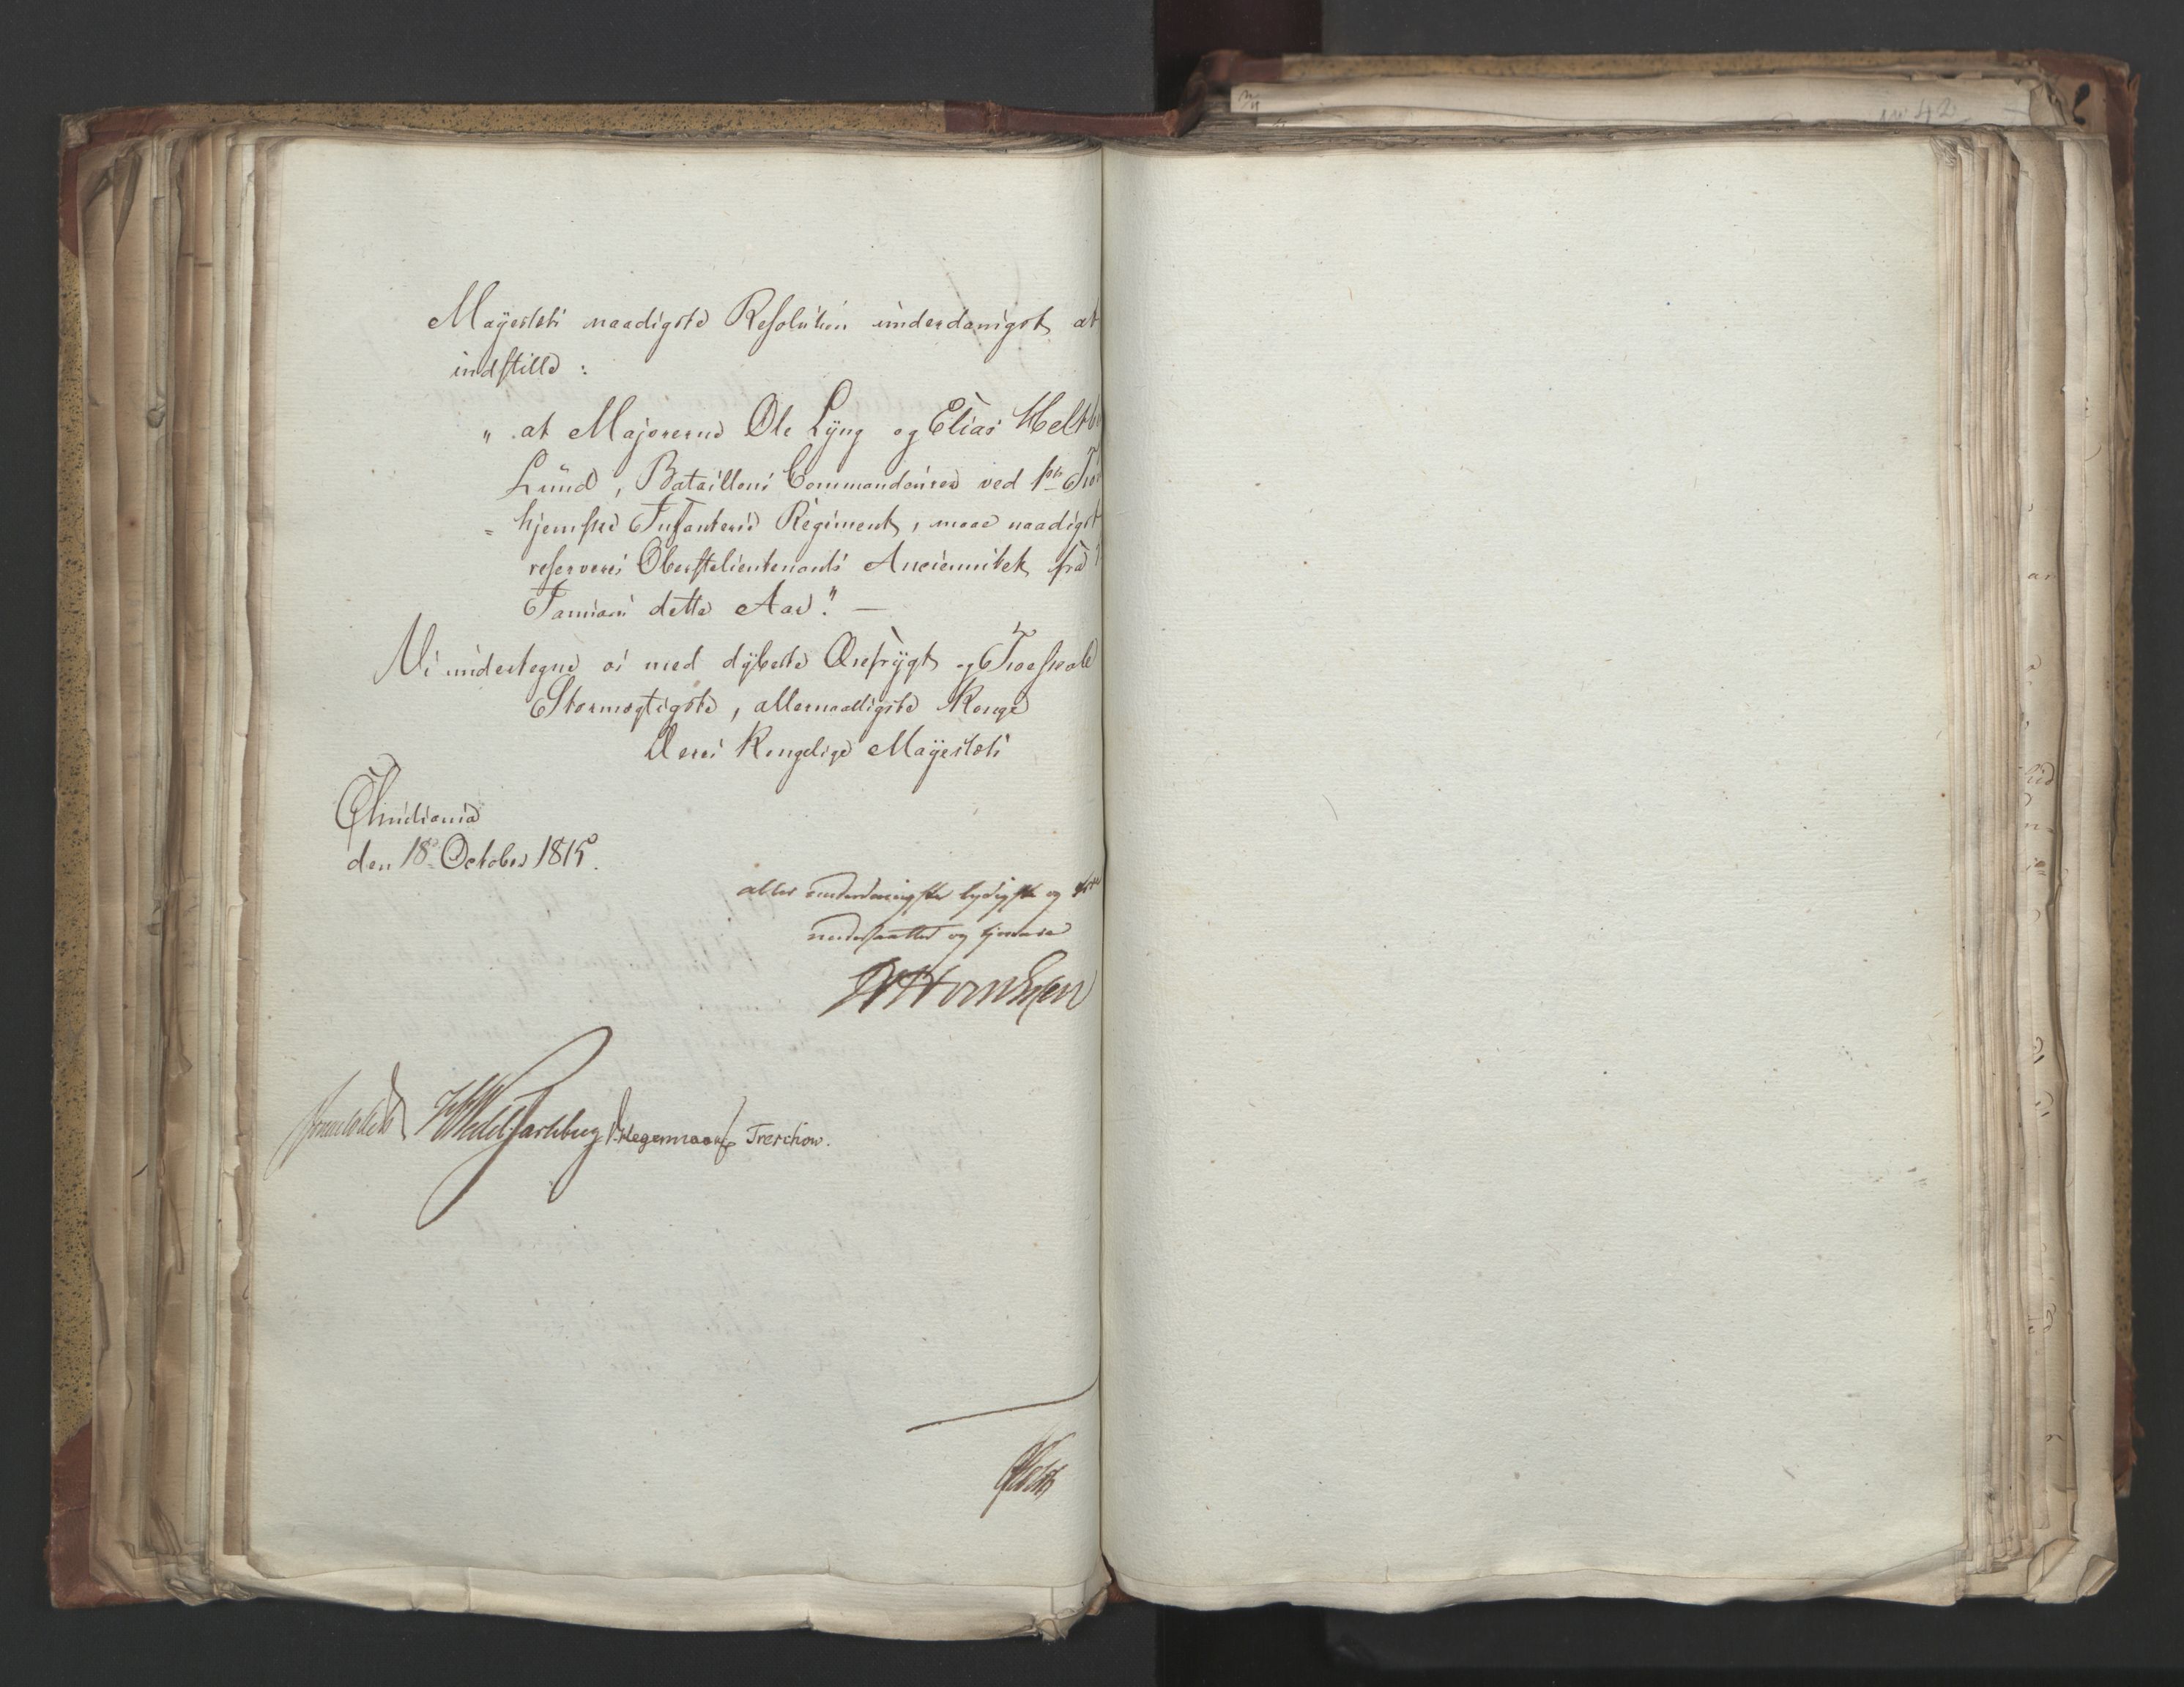 Mayestæts naadigste Resolution underdanigst at
indstille:
" at Majorerne Ole Lyng og Elias Heltb
Lund, Bataillons Commandeurer ved 1ste Tro
= hjemske Infanterie Regiment, maae naadigst
reserveres Oberstelieutenants Anciennitet fra 1
Januari dette Aar." —
Vi undertegne os med dybeste Ærefrygt og Troeskab
Stormægtigste, allernaadigste Konge
Deres Kongelige Mayestæts
Christiania
den 18de October 1815.
aller underdanigste lydigste og
undersaatter og tjenere
Sommerhielm HWedel Jarlsberg Hegermann Treschow.